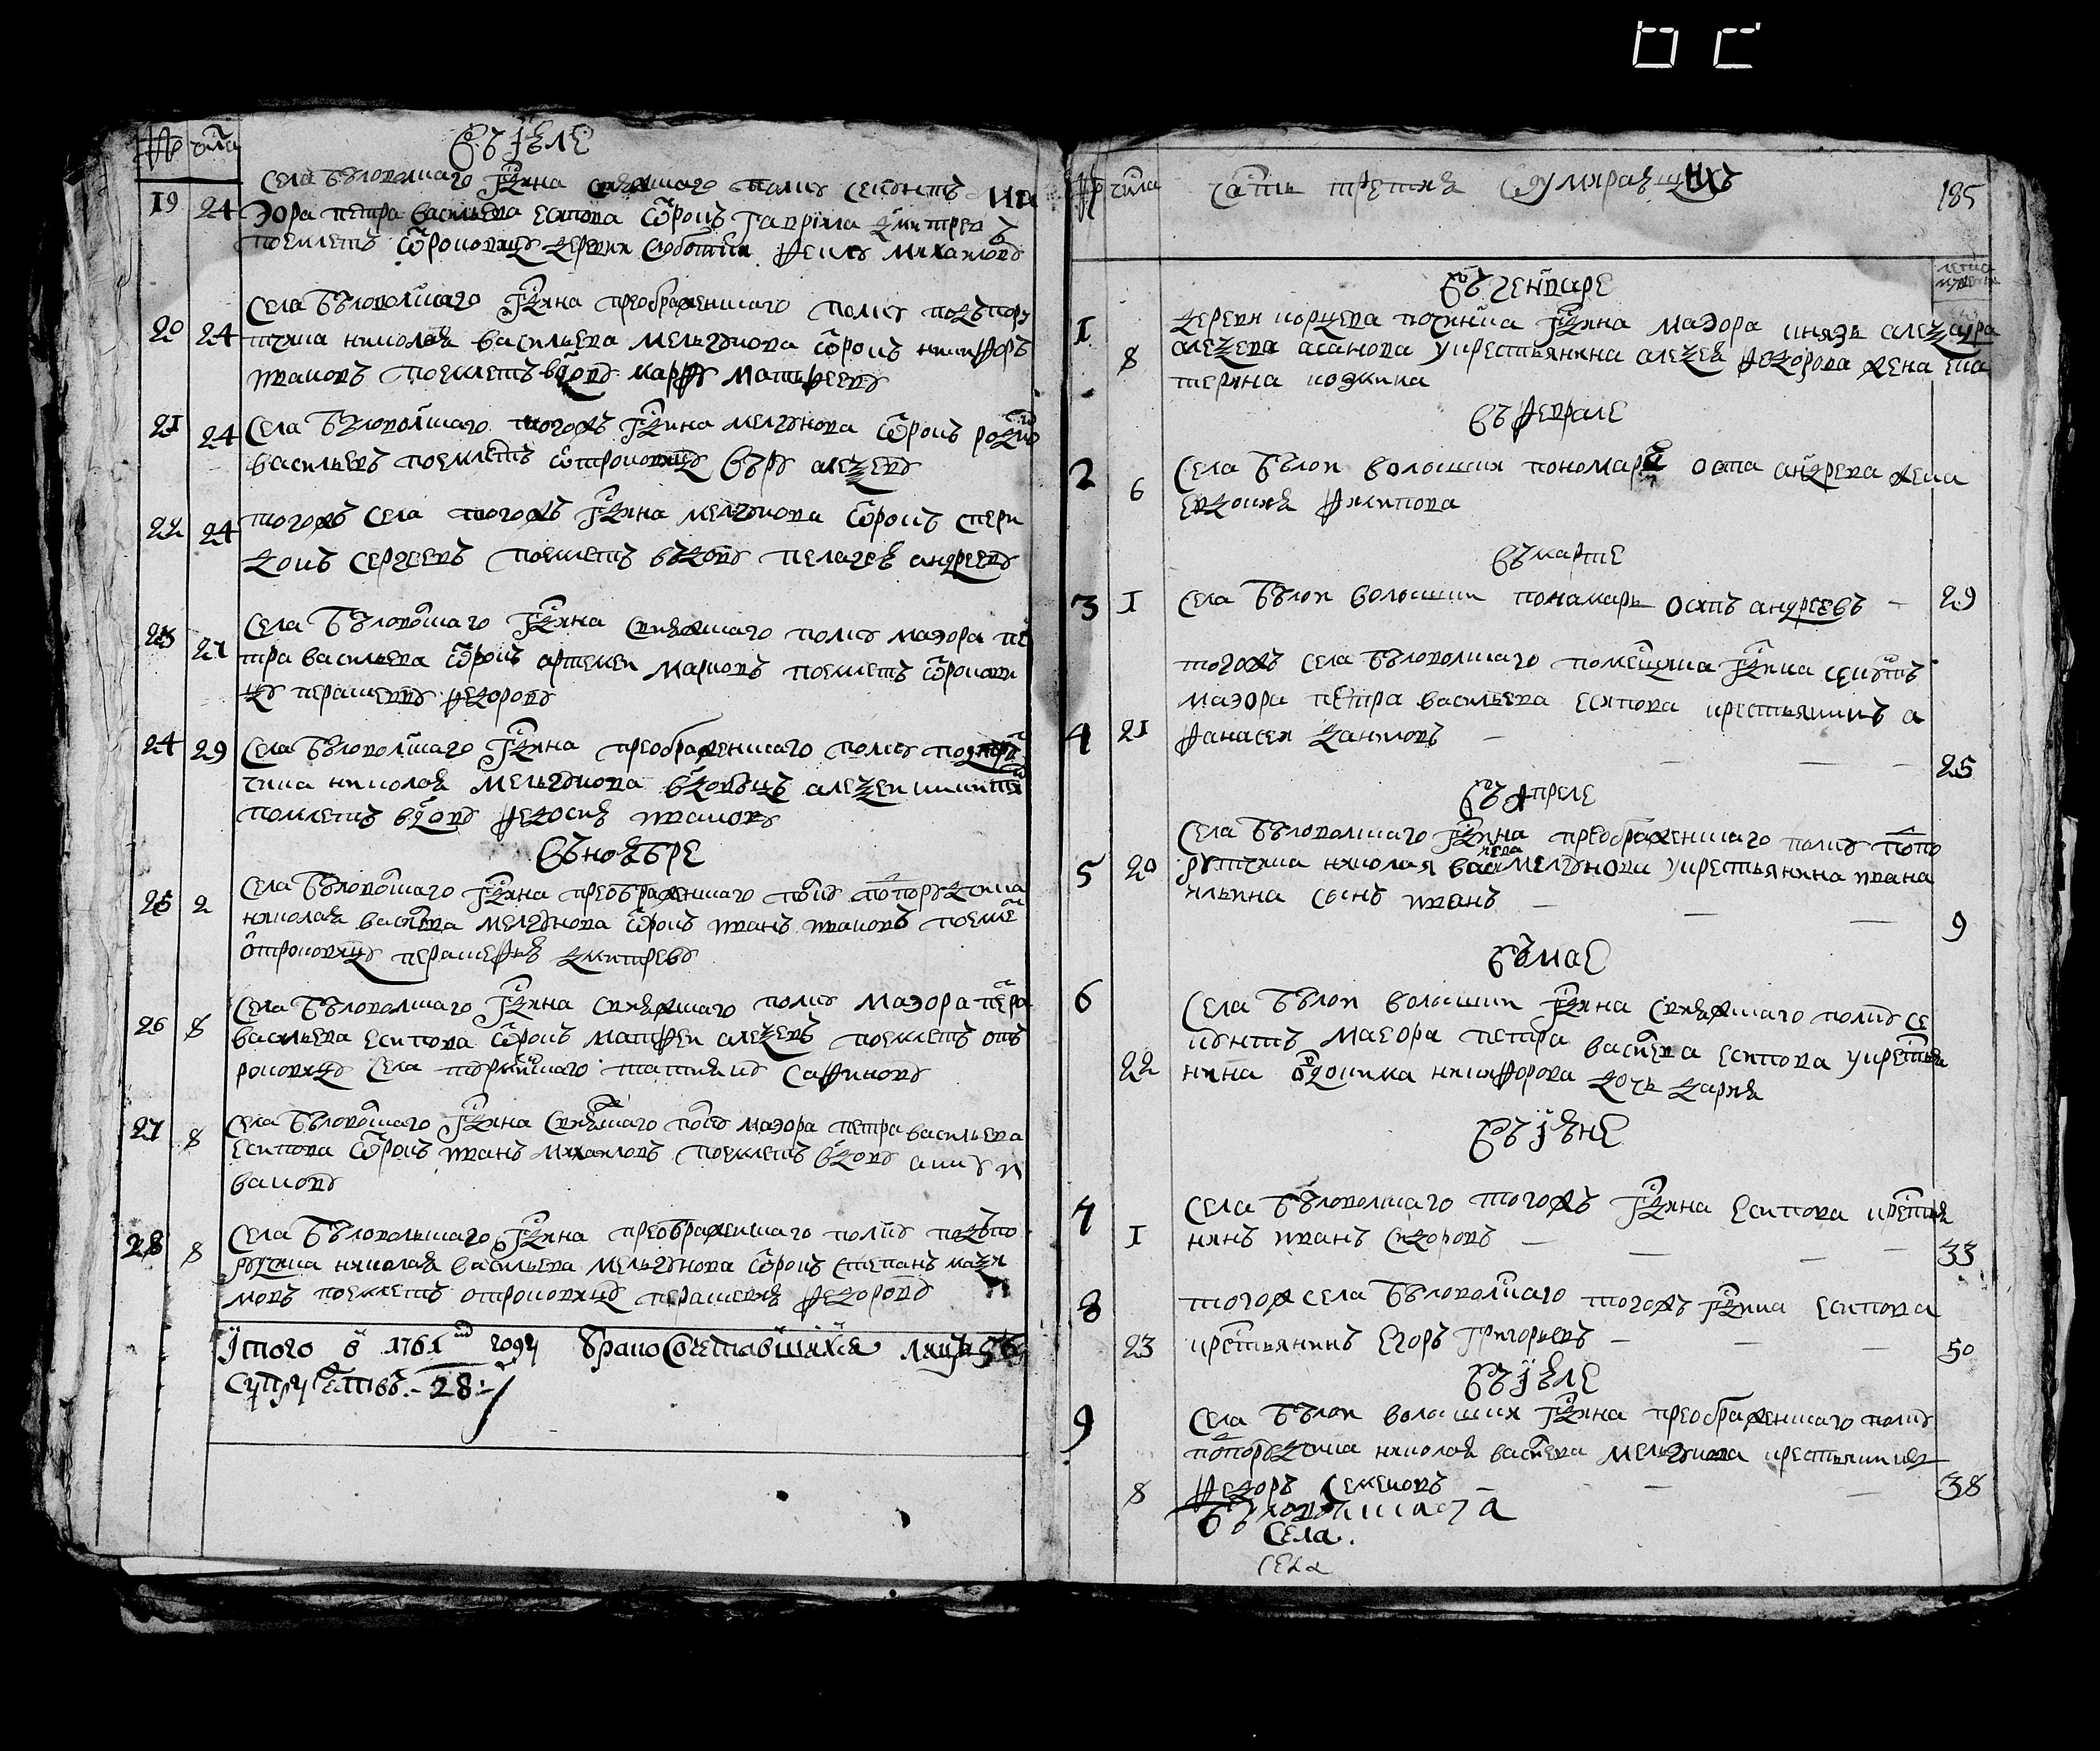 № числа
въ июле
19 24 Села Беловолшаго Гдина Сияжшаго полку секунтъ ма
эора петра васильева есипова отрокъ гаврила дмитрев
поемлетъ отроковицу деревни Слободки феклу михаилову
20 24 Села Беловолшаго Гдина преображеншаго полку подъпору
тчика николая васильева мельгунова отрокъ никифоръ
ивановъ поемлетъ вдову марфу матвееву
21 24 Села Беловолшаго тогожъ Гдина мелгунова отрокъ родио
васильевъ поемлетъ отроковицу веру алекееву
22 24 тогожъ села тогожъ Гдина мелгунова отрокъ спери
донъ сергеевъ поемлетъ въдову пелагею андрееву
23 27 Села Беловолшаго Гдина полку маэора пе
тра васильева отрокъ артемеи марковъ поемлетъ отрокови
цу парасковю федорову
24 29 Села Беловолшаго Гдина преображеншаго полку подпору
тчика николая мельгунова вдовецъ алекеи никити
поемлетъ вдову федосю иванову
въ ноябре
25 2 Села Беловолшаго Гдина преображеншаго полку попорудчика
николая васильева мелгунова отрокъ иванъ ивановъ поемле
отроковицу парасковю дмитреву
26 8 Села Беловолшаго Гдина полку маэора петра
васильева есипова отрокъ матфеи алекеевъ поемлетъ от
роковицу села татияну Сафонову
27 8 Села Беловолшаго Гдина полку маэора петра васильева
Есипова отрокъ иванъ михаиловъ поемлетъ вдову анну и
ванову
28 8 Села Беловолшаго Гдина преображеншаго полку подъпо
рутчика николая васильева мельгунова отрокъ степанъ макси
мовъ поемлетъ отроковицу федорову
Итого в 1761м году бракосочетавшихся лицъ 56
Супружествъ. - 28:
№ числа часть третия О умирающихъ 185
въ генваре
1 8 деревни починка Гдина маэора князь алекандра
алекеева асанова у крестьянина алекея федорова жена ека
терина козмина
въ феврале
2 6 Села Белои воложки пономаря осипа андреева жена
евдокия филипова
въ марте
3 1 Села Белои воложки понамарь осипъ андреевъ 29
4 21 тогожъ села Беловолшаго помещика Гдина секунтъ
маэора петра васильева есипова крестьянинъ а
фанасеи даниловъ 25
въ апреле
5 20 Села Беловолшаго Гдина преображеншаго полку попо
рутчика николая васильева мелгунова у крестьянина ивана
ильина сынъ иванъ 9
въ мае
6 22 Села Белои воложки Гдина полку се
кунтъ маеора петра васильева есипова у крестья
нина евдокима никифорова дочь дария
въ июне
7 1 Села Беловолшаго тогожъ Гдина есипова крестья
нинъ иванъ сидоровъ 33
8 23 тогож села Беловолшаго тогожъ Гдина есипова
крестьянинъ егоръ григорьевъ 50
въ июле
9 8 Села Белои воложки Гдина преображеншаго полку
попорудчика николая васильева мельгунова крестьянинъ
федоръ семеновъ 38
Беловолшаго
Села.
села